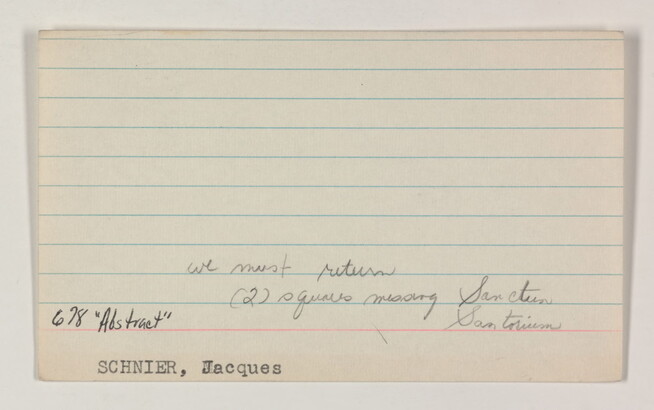 we must return
(2) squares missing Sanctum
Santorium
678 "Abstract"
SCHNIER, Jacques